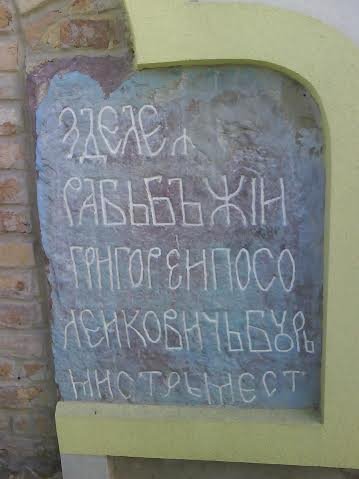 ЗДЕЛЕ Я
РАБЬБЪ ЖІН
ГРИГОРЕИ ПОСО
ЛЕНКОВИЧЬ БУРЬ
МИСТРЬ МЕСТ